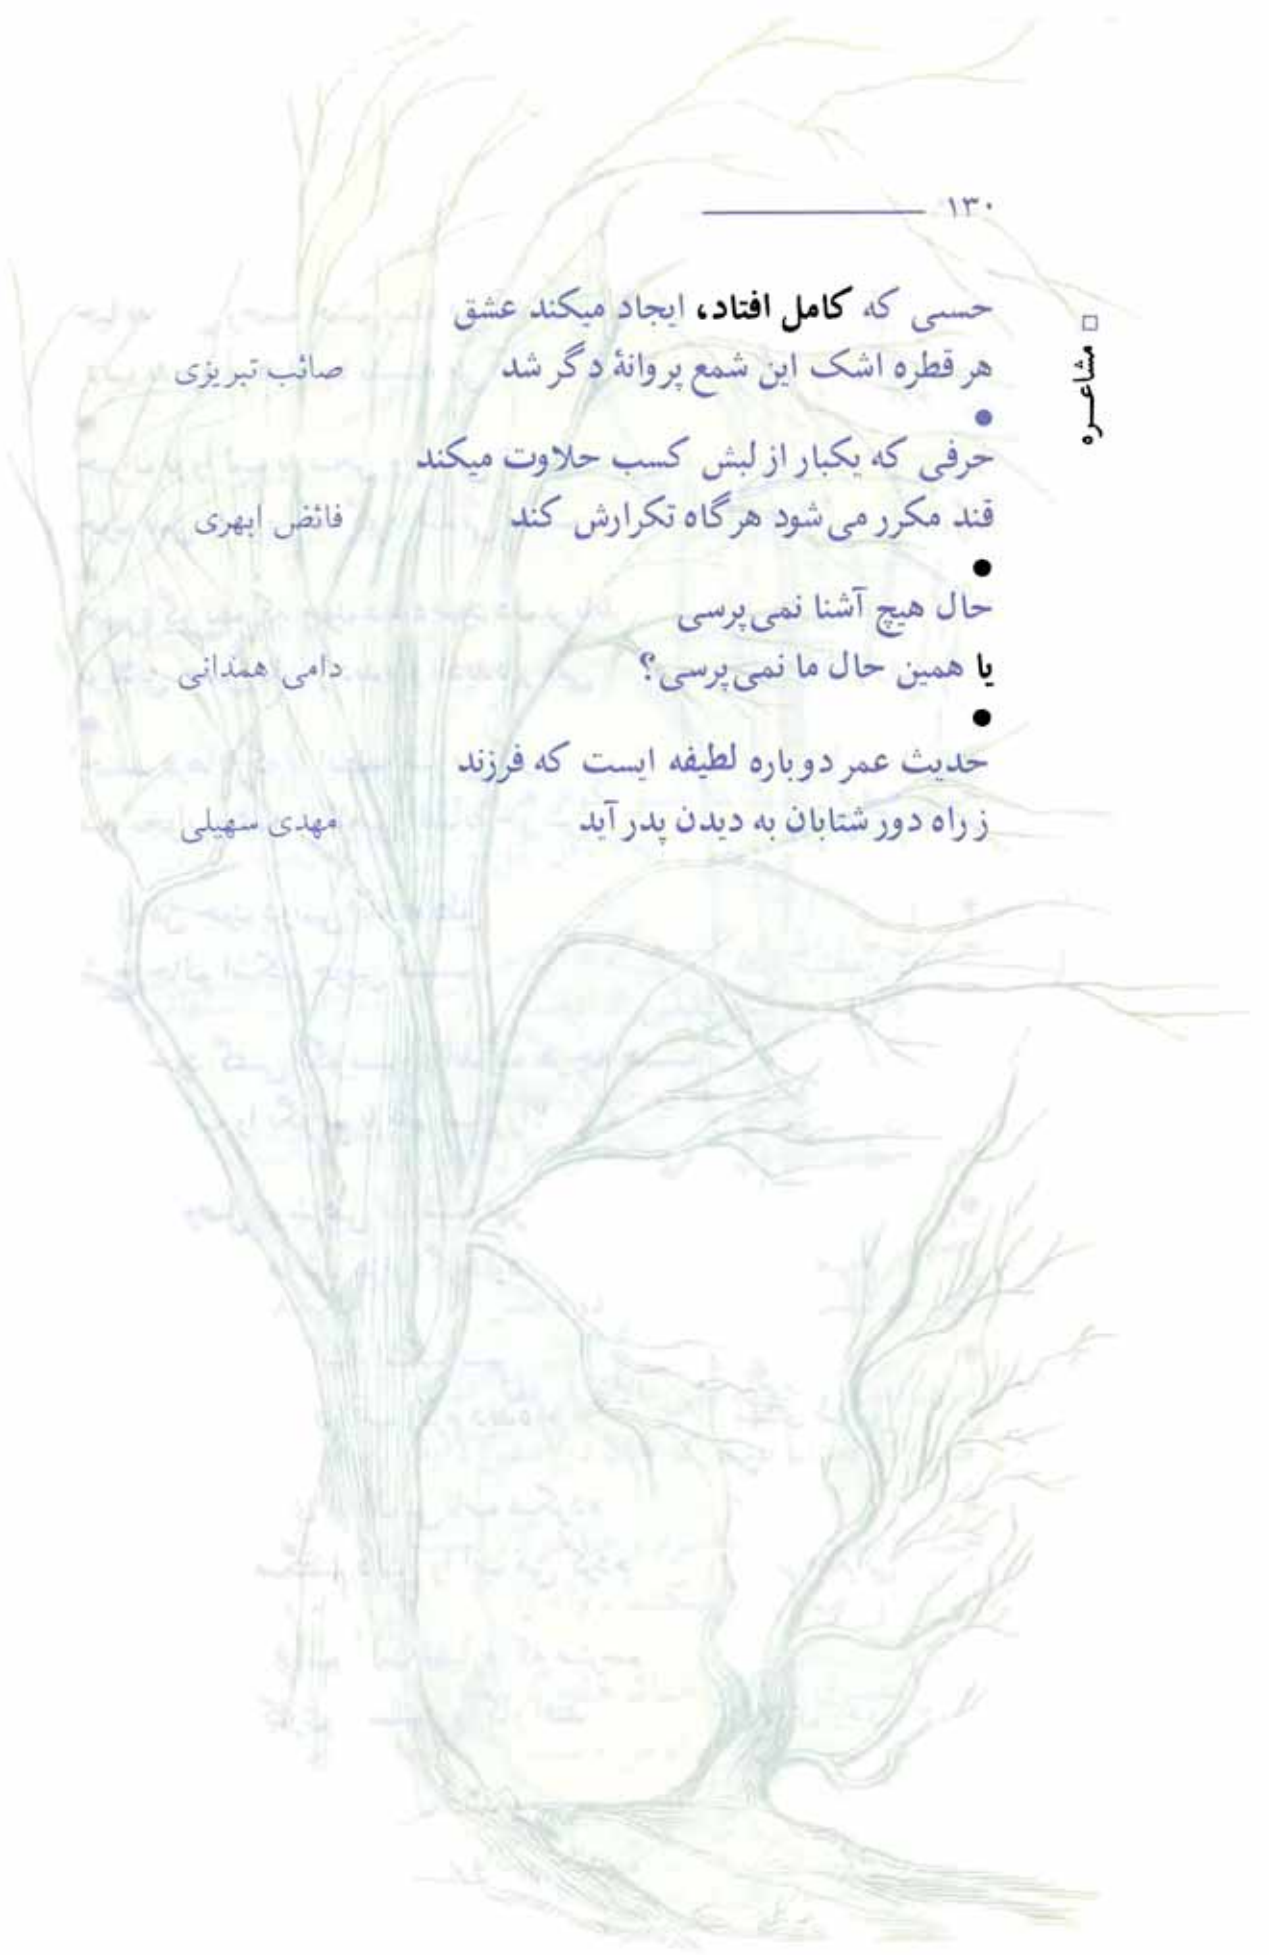 ۱۳۰
□ مشاعـــره
حسنی که کامل افتاد، ایجاد میکند عشق
هر قطره اشک این شمع پروانهٔ دگر شد صائب تبریزی
●
حرفی که یکبار از لبش کسب حلاوت میکند
قند مکرر می‌شود هرگاه تکرارش کند فائض ابهری
●
حال هیچ آشنا نمی‌پرسی
یا همین حال ما نمی‌پرسی؟ دامی همدانی
●
حدیث عمر دوباره لطیفه ایست که فرزند
ز راه دور شتابان به دیدن پدر آید مهدی سهیلی